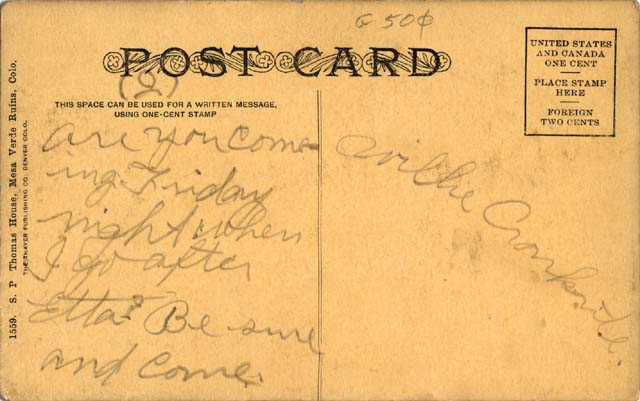 G 50¢
POST CARD
(2)
THIS SPACE CAN BE USED FOR A WRITTEN MESSAGE,
USING ONE-CENT STAMP
UNITED STATES
AND CANADA
ONE CENT
PLACE STAMP
HERE
FOREIGN
TWO CENTS
are you come-
ing Friday
night when
I go after
Etta? Be sure
and come.
Willie
1559. S. P Thomas House, Mesa Verde Ruins, Colo.
THE THAYER PUBLISHING CO. DENVER COLO.